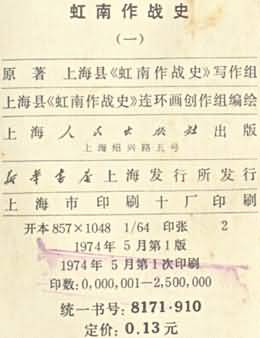 虹南作战史
(一)
原著 上海县《虹南作战史》写作组
上海县《虹南作战史》连环画创作组编绘
上海人民出版社出版
上海绍兴路五号
新华书店上海发行所发行
上海市印刷十厂印刷
开本 857×1048 1/64 印张 2
1974年5月第1版
1974年5月第1次印刷
印数:0,000,001—2,500,000
统一书号:8171·910
定价:0.13元